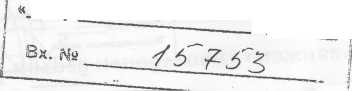 «
Вх. № 15753